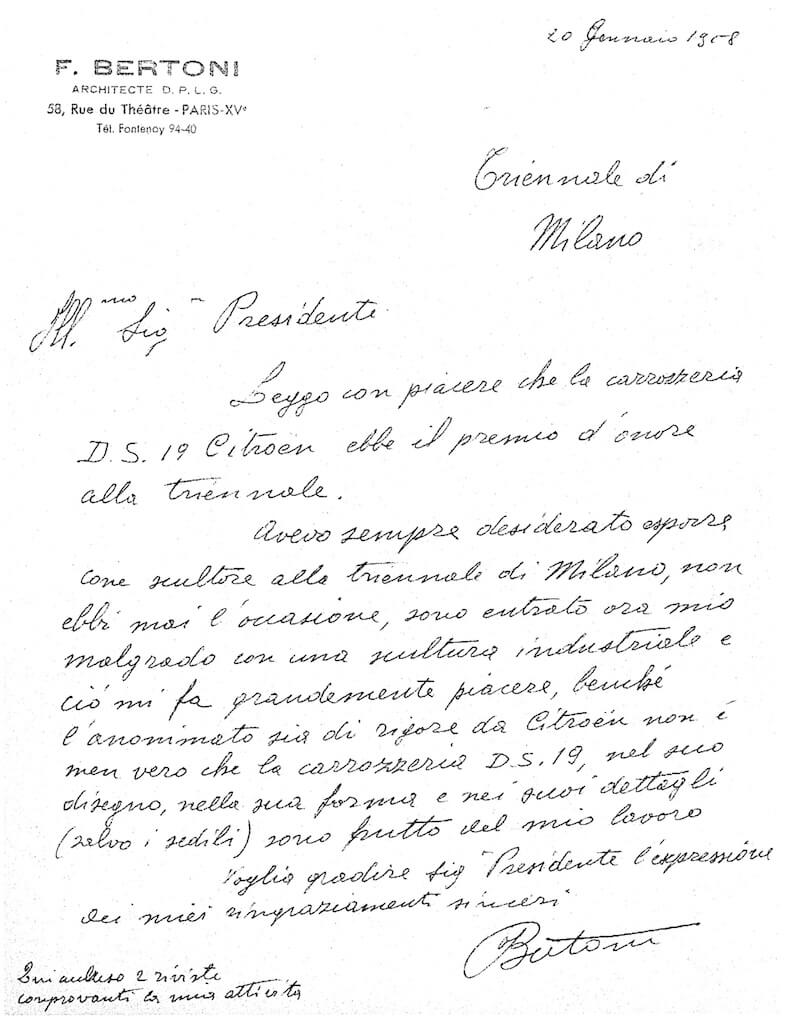 20 Gennaio 1958
F. BERTONI
ARCHITECTE D. P. L. G.
58, Rue du Théâtre - PARIS-XVe
Tél. Fontenoy 94-40
Triennale di
Milano
Ill.mo Sig Presidente
Leggo con piacere che la carrozzeria
D.S. 19 Citroën ebbe il premio d'onore
alla triennale.
Avevo sempre desiderato esporre
come scultore alla triennale di Milano, non
ebbi mai l'occasione, sono entrato ora mio
malgrado con una scultura industriale e
ciò mi fa grandemente piacere, benché
l'anonimato sia di rigore da Citroën non è
men vero che la carrozzeria D.S. 19, nel suo
disegno, nella sua forma e nei suoi dettagli
(salvo i sedili) sono frutto del mio lavoro
Voglia gradire Sig Presidente l'expressione
dei miei ringraziamenti sinceri
Bertoni
Qui accluso 2 riviste
comprovanti la mia attività